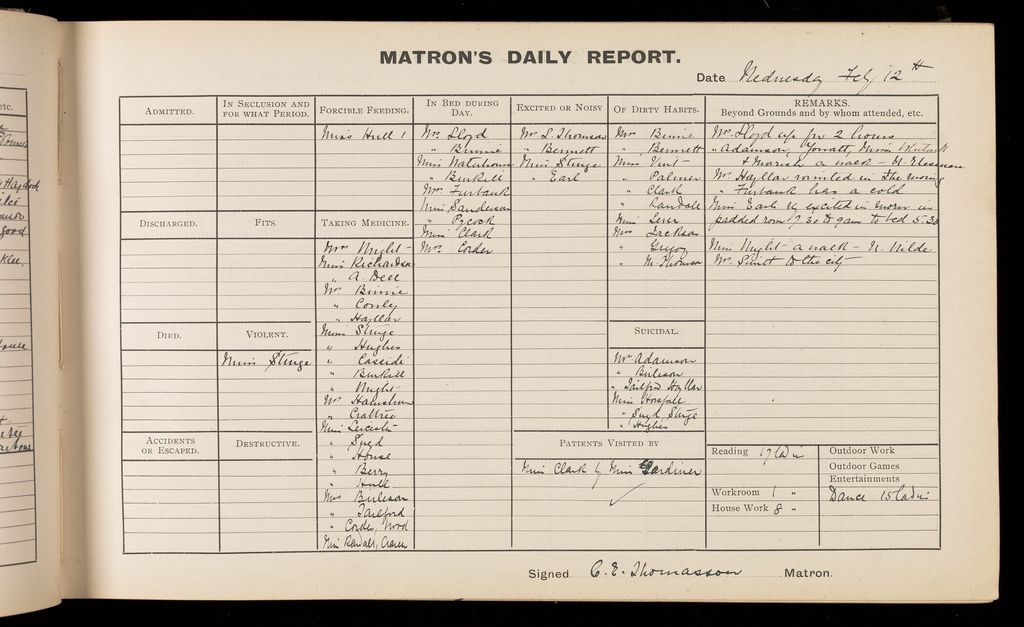 MATRON'S DAILY REPORT.
Date Wednesday Feb 12th
ADMITTED.
IN SECLUSION AND FOR WHAT PERIOD.
FORCIBLE FEEDING.
Miss Hull 1
IN BED DURING DAY.
Mrs Lloyd
" Binnie
Miss Waterhouse
" Burkill
Mrs Furbank
Miss Sanderson
" Pocock
Miss Clark
Mrs Corder
EXCITED OR NOISY
Mrs L. Thomson
" Bennett
Miss Sturge
" Earl
OF DIRTY HABITS.
Mrs Binnie
" Bennett
Miss Vint
" Palmer
" Clark
" Randall
Miss
Mrs Jackson
"
" M. Thomson
REMARKS.
Beyond Grounds and by whom attended, etc.
Mrs Lloyd up for 2 hours
" Adamson, Miss
& a walk - N.
Mrs Hayllar vomited in the
" Furbank has a cold
Miss Earl excited in
padded room 7.30 to 9am to bed 5.30
Miss Wright a walk - N. Wilde
Mrs to the city
DISCHARGED.
FITS
TAKING MEDICINE.
Mrs Wright
Miss Richardson
" A. Dell
Mrs Binnie
" Conly
" Hayllar
Miss Sturge
" Hughes
" Cassidi
" Burkill
" Wright
Mrs
" Crabtree
Miss Leicester
" Syed
" House
" Berry
" Hull
Mrs Burleson
" Tailford
" Corder, Wood
Miss Randall,
DIED.
VIOLENT.
Miss Sturge
SUICIDAL.
Mrs Adamson
" Burleson
" Tailford Hayllar
Miss Horsfall
" Syed, Sturge
" Hughes
ACCIDENTS OR ESCAPED.
DESTRUCTIVE.
PATIENTS VISITED BY
Miss Clark by Miss Gardiner
Reading 17 Ladies
Workroom 1 "
House Work 8 "
Outdoor Work
Outdoor Games
Entertainments
Dance 15 Ladies
Signed C. E. Thomasson Matron.